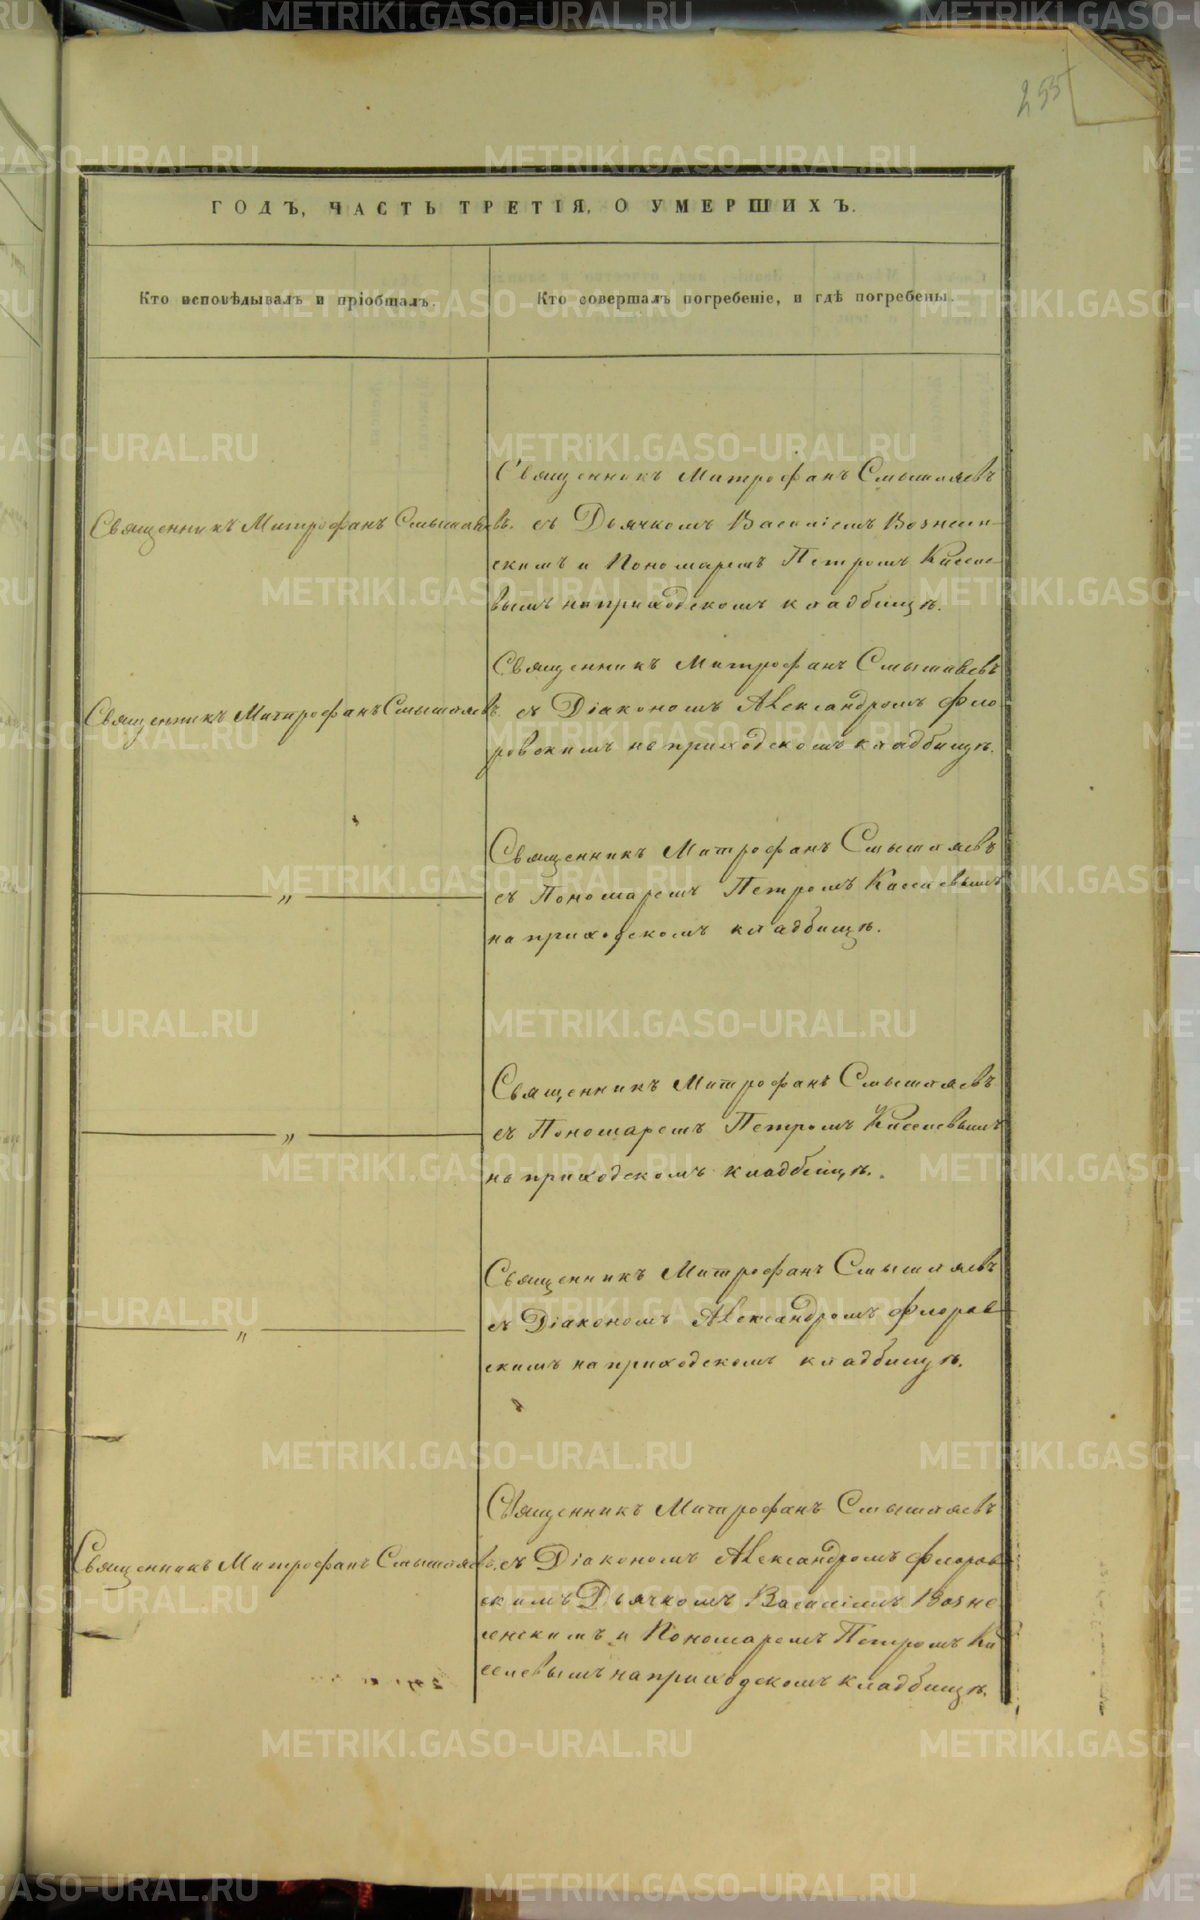 255
ГОДЪ, ЧАСТЬ ТРЕТІЯ, О УМЕРШИХЪ.
Кто исповѣдывалъ и пріобщалъ.
Кто совершалъ погребеніе, и гдѣ погребены.
Священникъ Митрофанъ Смышляевъ.
Священникъ Митрофанъ Смышляевъ
съ Дьячкомъ Василіемъ Вознесен-
скимъ и Пономаремъ Петромъ Киселе-
вымъ на приходскомъ кладбищѣ.
Священникъ Митрофанъ Смышляевъ.
Священникъ Митрофанъ Смышляевъ
съ Діакономъ Александромъ Фло-
ровскимъ на приходскомъ кладбищѣ.
"
Священникъ Митрофанъ Смышляевъ
съ Пономаремъ Петромъ Киселевымъ
на приходскомъ кладбищѣ.
"
Священникъ Митрофанъ Смышляевъ
съ Пономаремъ Петромъ Киселевымъ
на приходскомъ кладбищѣ.
"
Священникъ Митрофанъ Смышляевъ
съ Діакономъ Александромъ Флоров-
скимъ на приходскомъ кладбищѣ.
Священникъ Митрофанъ Смышляевъ.
Священникъ Митрофанъ Смышляевъ
съ Діакономъ Александромъ Флоров-
скимъ Дьячкомъ Василіемъ Возне
сенскимъ и Пономаремъ Петромъ Ки
селевымъ на приходскомъ кладбищѣ.
METRIKI.GASO-URAL.RU